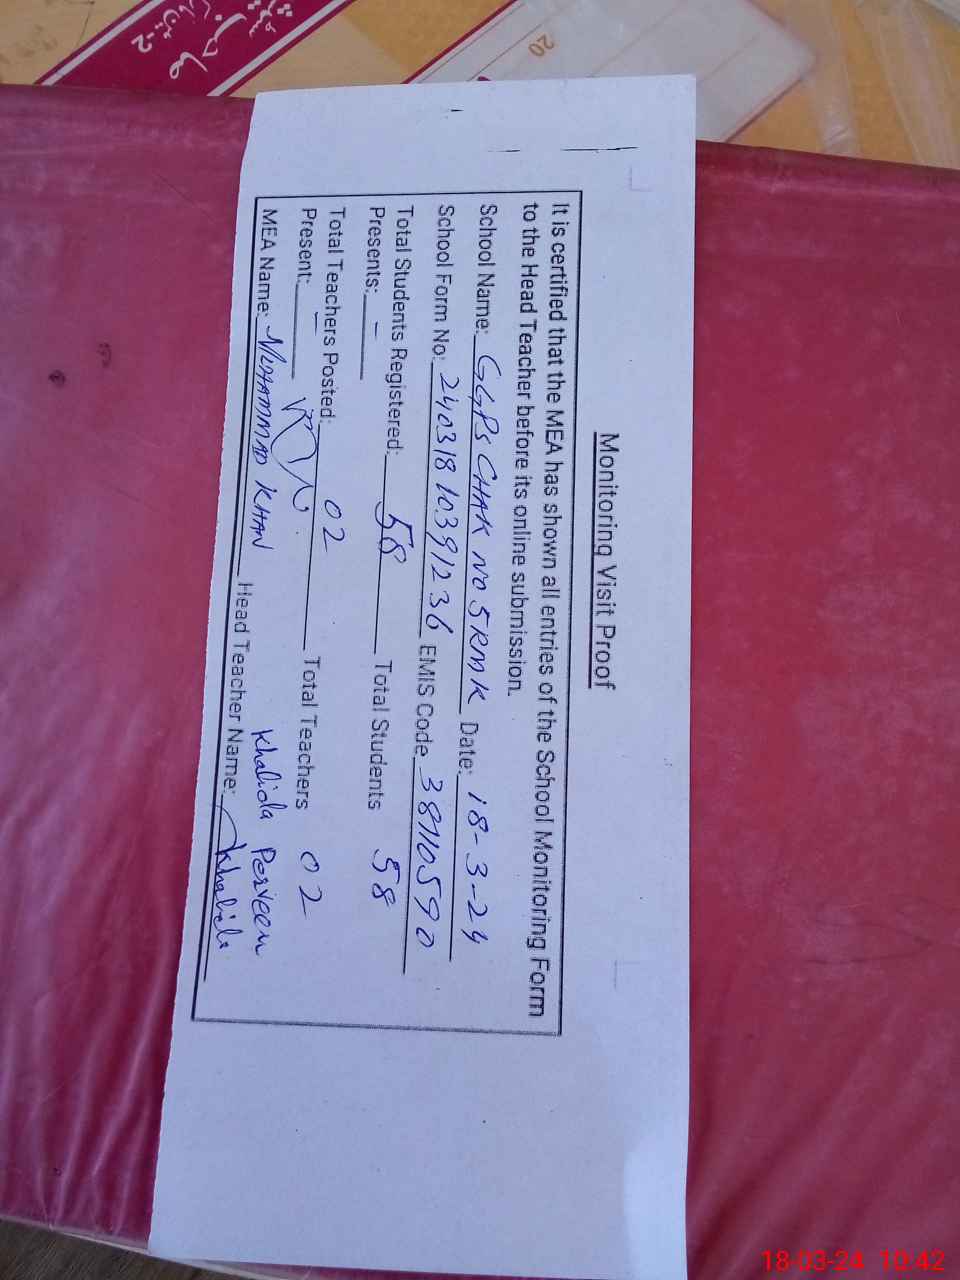 Monitoring Visit Proof
It is certified that the MEA has shown all entries of the School Monitoring Form
to the Head Teacher before its online submission.
School Name: GGPS CHAK NO 5 RMK Date: 18-3-24
School Form No: 240318 10391236 EMIS Code 38110590
Total Students Registered: 58 Total Students 58
Presents: -
Total Teachers Posted: 02 Total Teachers 02
Present: -
Khalida Perveen
MEA Name: MUHAMMAD KHAN Head Teacher Name: Khalida
20
18-03-24 10:42